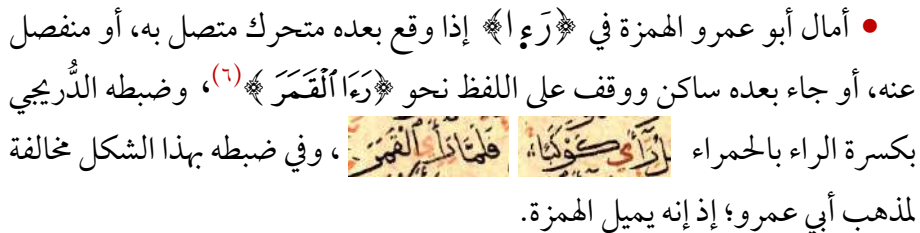 • أمال أبو عمرو الهمزة في ﴿رَءِا﴾ إذا وقع بعده متحرك متصل به، أو منفصل
عنه، أو جاء بعده ساكن ووقف على اللفظ نحو ﴿رَءَا ٱلْقَمَرَ﴾(٦)، وضبطه الدُّريجي
بكسرة الراء بالحمراء كَوْكَبًا فَلَمَّا رَأَى الْقَمَرَ، وفي ضبطه بهذا الشكل مخالفة
لمذهب أبي عمرو؛ إذ إنه يميل الهمزة.